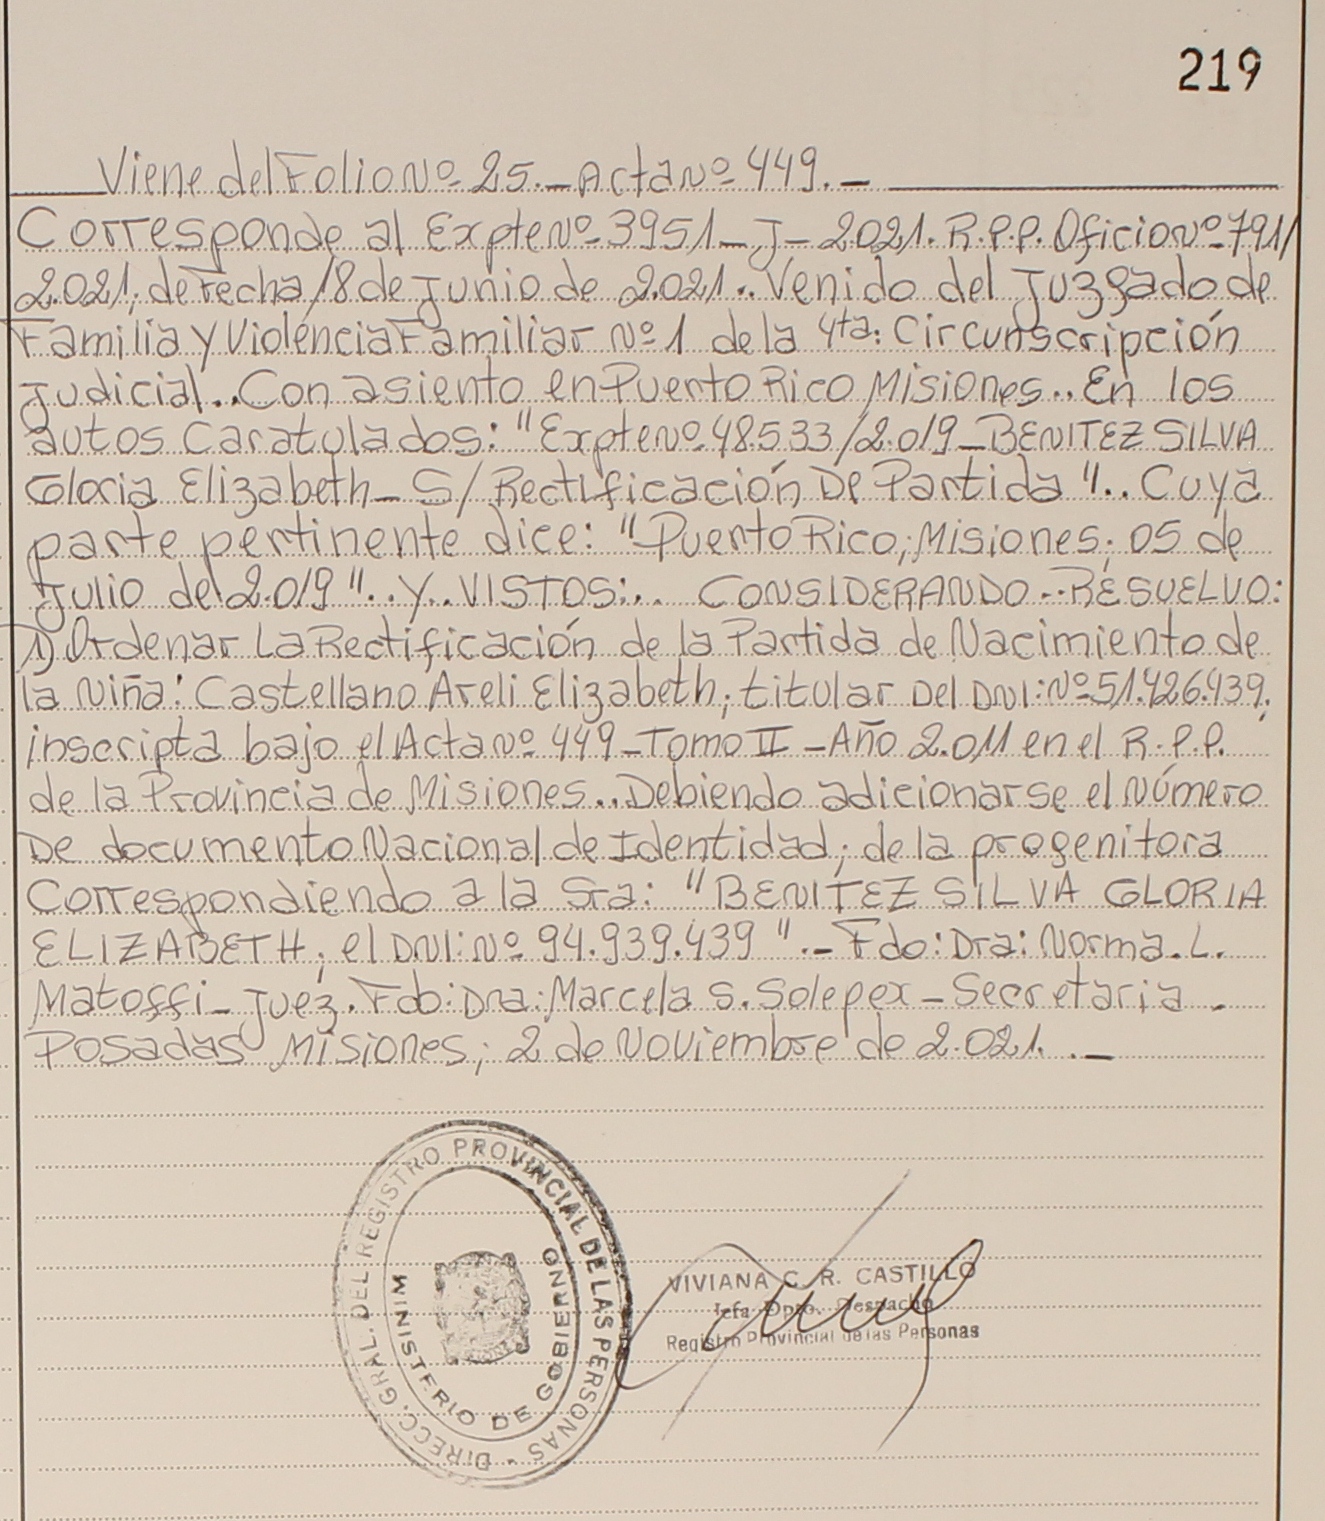 219
Viene del Folio Nº 25._ Acta Nº 449._
Corresponde al Expte Nº 3951_J_2021. R.P.P. Oficio Nº 791/
2.021; de Fecha 18 de Junio de 2.021.. Venido del Juzgado de
Familia y Violencia Familiar Nº 1 de la 4ta: Circunscripción
Judicial.. Con asiento en Puerto Rico Misiones.. En los
autos Caratulados: "Expte Nº 48.533/2.019_BENITEZ SILVA
Gloria Elizabeth_ S/Rectificación De Partida".. Cuya
parte pertinente dice: "Puerto Rico; Misiones; 05 de
Julio de 2.019".. Y..VISTOS:.. CONSIDERANDO..RESUELVO:
1) Ordenar La Rectificación de la Partida de Nacimiento de
la Niña: Castellano Areli Elizabeth; titular Del DNI: Nº 51.426.439;
inscripta bajo el Acta Nº 449_Tomo II_Año 2.011 en el R.P.P.
de la Provincia de Misiones.. Debiendo adicionarse el Número
De documento Nacional de Identidad; de la progenitora
Correspondiendo a la Sra: "BENITEZ SILVA GLORIA
ELIZABETH; el DNI: Nº 94.939.439"._ Fdo: Dra: Norma. L.
Matoffi_ Juez. Fdo: Dra: Marcela S. Solepex_Secretaria.
Posadas Misiones; 2 de Noviembre de 2.021. ._
DIRECC. GRAL. DEL REGISTRO PROVINCIAL DE LAS PERSONAS -
MINISTERIO DE GOBIERNO
VIVIANA C. R. CASTILLO
Jefa Dpto. Despacho
Registro Provincial de las Personas